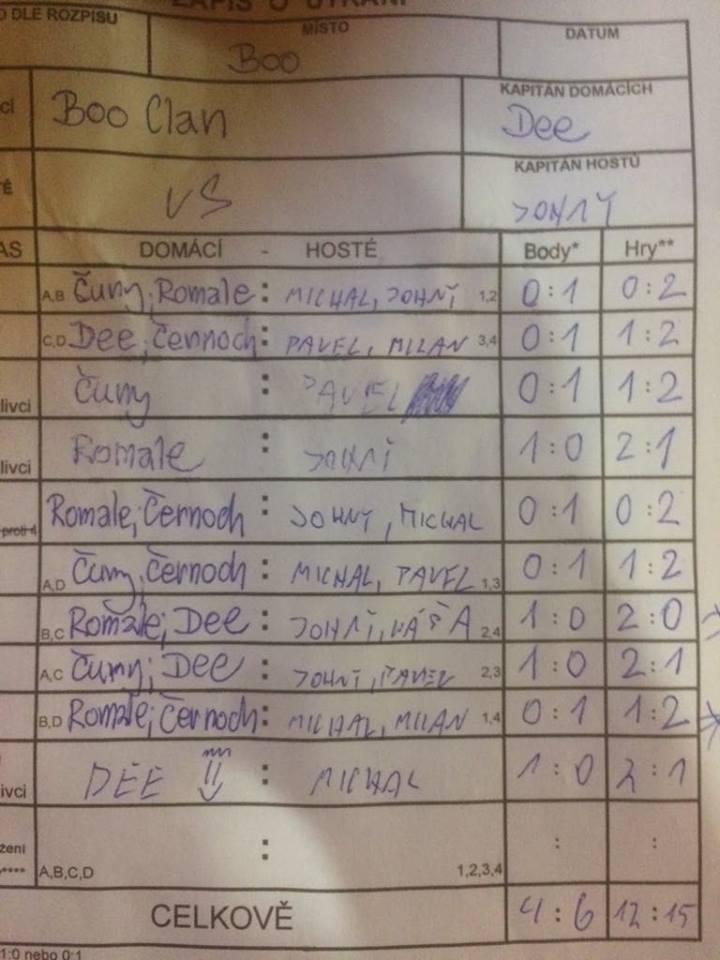 ZÁPIS O UTKÁNÍ
DLE ROZPISU MÍSTO DATUM
Boo
KAPITÁN DOMÁCÍCH
Boo Clan Dee
KAPITÁN HOSTŮ
VS JOHNY
DOMÁCÍ - HOSTÉ Body* Hry**
A,B Čumy, Romale : MICHAL, JOHNY 1,2 0:1 0:2
C,D Dee, Černoch : PAVEL, MILAN 3,4 0:1 1:2
livci Čumy : PAVEL 0:1 1:2
livci Romale : JOHNY 1:0 2:1
proti 4 Romale, Černoch : JOHNY, MICHAL 0:1 0:2
A,D Čumy, Černoch : MICHAL, PAVEL 1,3 0:1 1:2
B,C Romale, Dee : JOHNY, 2,4 1:0 2:0
A,C Čumy, Dee : JOHNY, PAVEL 2,3 1:0 2:1
B,D Romale, Černoch : MICHAL, MILAN 1,4 0:1 1:2
ivci DEE : MICHAL 1:0 2:1
: : :
A,B,C,D 1,2,3,4
CELKOVĚ 4:6 12:15
1:0 nebo 0:1